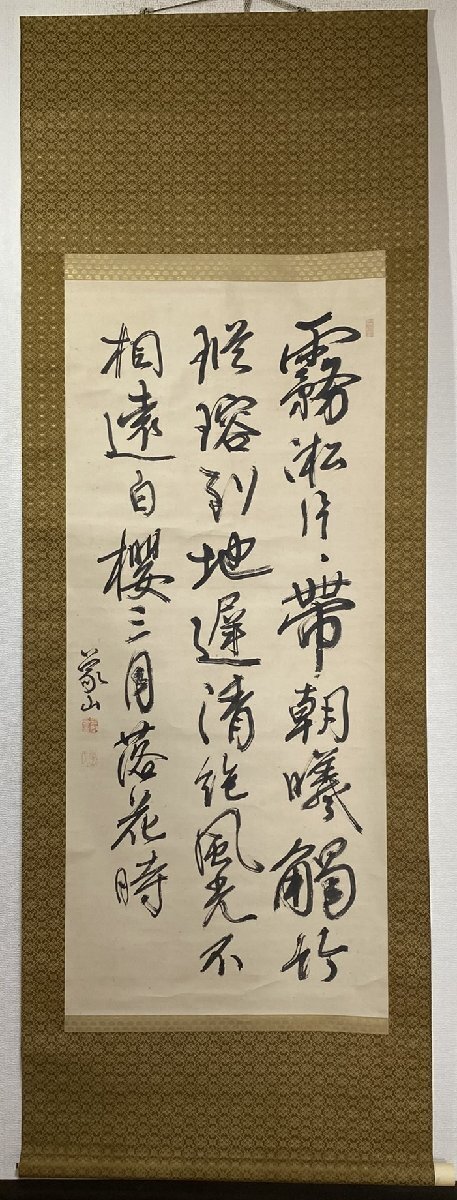 霧淞片々帶朝曦觸竹
瑽瑢到地遲清絶風光不
相遠白櫻三月落花時
蒙山